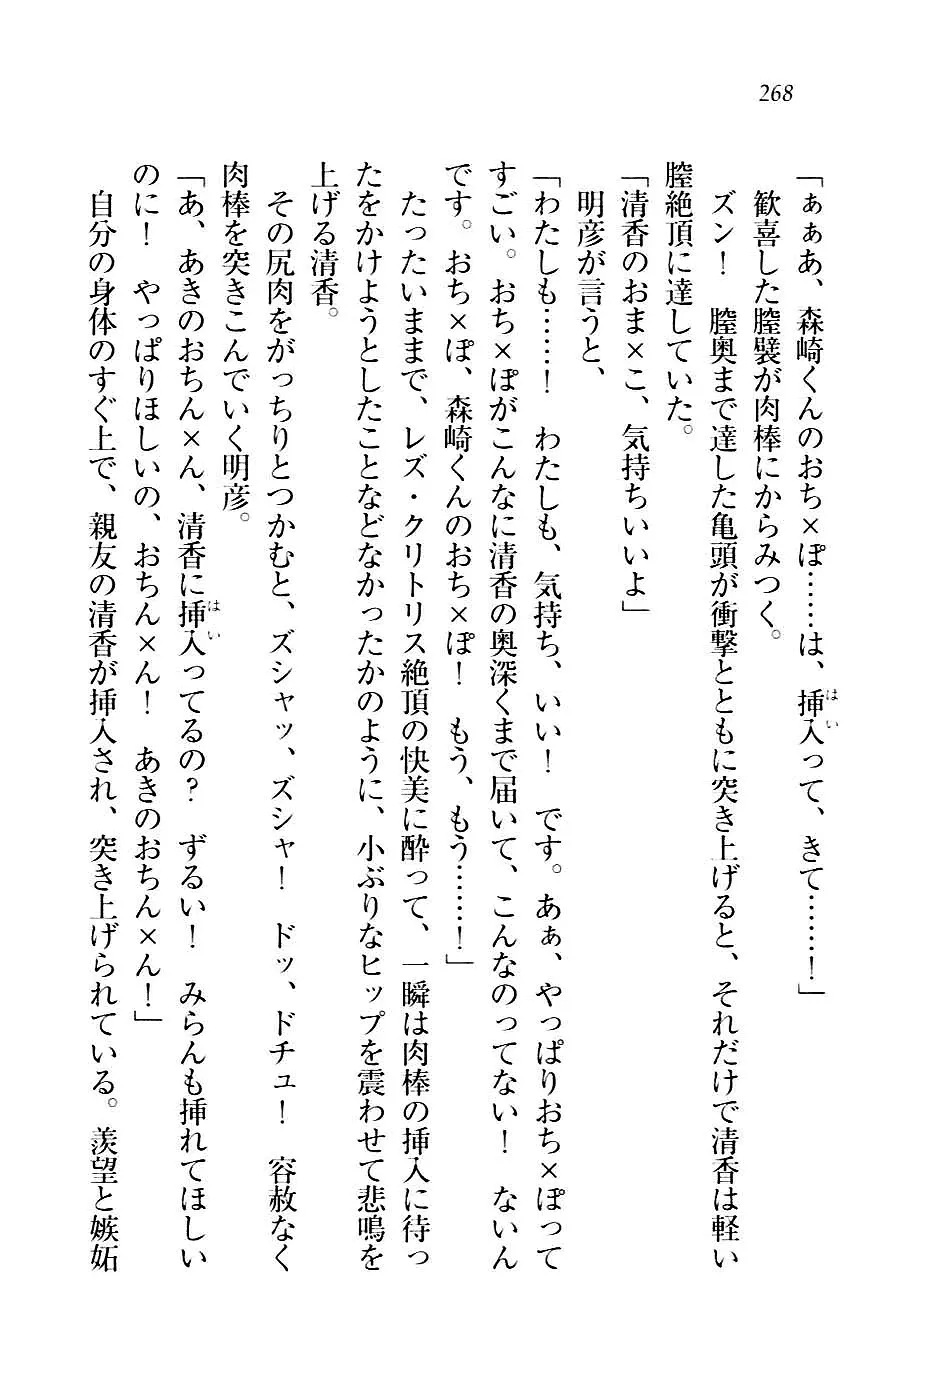 268
「ぁぁあ、森崎くんのおち×ぽ……は、挿入って、きて……！」
歓喜した膣襞が肉棒にからみつく。
ズン！　膣奥まで達した亀頭が衝撃とともに突き上げると、それだけで清香は軽い
膣絶頂に達していた。
「清香のおま×こ、気持ちいいよ」
明彦が言うと、
「わたしも……！　わたしも、気持ち、いい！　です。あぁ、やっぱりおち×ぽって
すごい。おち×ぽがこんなに清香の奥深くまで届いて、こんなのってない！　ないん
です。おち×ぽ、森崎くんのおち×ぽ！　もう、もう……！」
たったいままで、レズ・クリトリス絶頂の快美に酔って、一瞬は肉棒の挿入に待っ
たをかけようとしたことなどなかったかのように、小ぶりなヒップを震わせて悲鳴を
上げる清香。
その尻肉をがっちりとつかむと、ズシャッ、ズシャ！　ドッ、ドチュ！　容赦なく
肉棒を突きこんでいく明彦。
「あ、あきのおちん×ん、清香に挿入ってるの？　ずるい！　みらんも挿れてほしい
のに！　やっぱりほしいの、おちん×ん！　あきのおちん×ん！」
自分の身体のすぐ上で、親友の清香が挿入され、突き上げられている。羨望と嫉妬